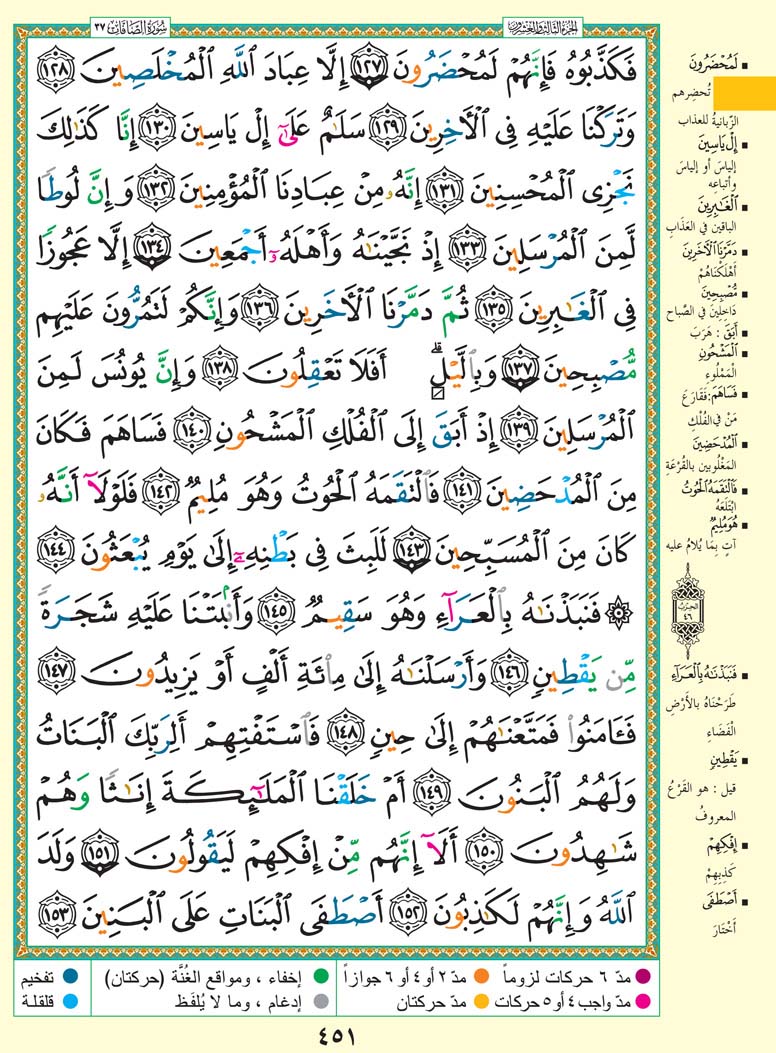 سُورَةُ الصَّافَّات ٣٧
الجُزءُ الثالِثُ والعِشرُونَ
فَكَذَّبُوهُ فَإِنَّهُمْ لَمُحْضَرُونَ ١٢٧ إِلَّا عِبَادَ ٱللَّهِ ٱلْمُخْلَصِينَ ١٢٨
وَتَرَكْنَا عَلَيْهِ فِى ٱلْأَخِرِينَ ١٢٩ سَلَٰمٌ عَلَىٰٓ إِلْ يَاسِينَ ١٣٠ إِنَّا كَذَٰلِكَ
نَجْزِى ٱلْمُحْسِنِينَ ١٣١ إِنَّهُۥ مِنْ عِبَادِنَا ٱلْمُؤْمِنِينَ ١٣٢ وَإِنَّ لُوطًا
لَّمِنَ ٱلْمُرْسَلِينَ ١٣٣ إِذْ نَجَّيْنَٰهُ وَأَهْلَهُۥٓ أَجْمَعِينَ ١٣٤ إِلَّا عَجُوزًا
فِى ٱلْغَٰبِرِينَ ١٣٥ ثُمَّ دَمَّرْنَا ٱلْأَخَرِينَ ١٣٦ وَإِنَّكُمْ لَتَمُرُّونَ عَلَيْهِم
مُّصْبِحِينَ ١٣٧ وَبِٱلَّيْلِۗ أَفَلَا تَعْقِلُونَ ١٣٨ وَإِنَّ يُونُسَ لَمِنَ
ٱلْمُرْسَلِينَ ١٣٩ إِذْ أَبَقَ إِلَى ٱلْفُلْكِ ٱلْمَشْحُونِ ١٤٠ فَسَاهَمَ فَكَانَ
مِنَ ٱلْمُدْحَضِينَ ١٤١ فَٱلْتَقَمَهُ ٱلْحُوتُ وَهُوَ مُلِيمٌ ١٤٢ فَلَوْلَآ أَنَّهُۥ
كَانَ مِنَ ٱلْمُسَبِّحِينَ ١٤٣ لَلَبِثَ فِى بَطْنِهِۦٓ إِلَىٰ يَوْمِ يُبْعَثُونَ ١٤٤
۞ فَنَبَذْنَٰهُ بِٱلْعَرَآءِ وَهُوَ سَقِيمٌ ١٤٥ وَأَنۢبَتْنَا عَلَيْهِ شَجَرَةً
مِّن يَقْطِينٍ ١٤٦ وَأَرْسَلْنَٰهُ إِلَىٰ مِا۟ئَةِ أَلْفٍ أَوْ يَزِيدُونَ ١٤٧
فَـَٔامَنُوا۟ فَمَتَّعْنَٰهُمْ إِلَىٰ حِينٍ ١٤٨ فَٱسْتَفْتِهِمْ أَلِرَبِّكَ ٱلْبَنَاتُ
وَلَهُمُ ٱلْبَنُونَ ١٤٩ أَمْ خَلَقْنَا ٱلْمَلَٰٓئِكَةَ إِنَٰثًا وَهُمْ
شَٰهِدُونَ ١٥٠ أَلَآ إِنَّهُم مِّنْ إِفْكِهِمْ لَيَقُولُونَ ١٥١ وَلَدَ
ٱللَّهُ وَإِنَّهُمْ لَكَٰذِبُونَ ١٥٢ أَصْطَفَى ٱلْبَنَاتِ عَلَى ٱلْبَنِينَ ١٥٣
لَمُحْضَرُونَ
تُحضِرهم
الزّبانيةُ للعذاب
إِلْ يَاسِينَ
إلياسَ أو إلياسَ
وأتباعِه
ٱلْغَٰبِرِينَ
الباقين في العَذَاب
دَمَّرْنَا ٱلْأَخَرِينَ
أَهْلَكْنَاهُمْ
مُّصْبِحِينَ
دَاخِلِينَ في الصَّباح
أَبَقَ : هَرَبَ
ٱلْمَشْحُونِ
المَمْلُوءِ
فَسَاهَمَ : فَقَارَعَ
مَنْ في الفُلْك
ٱلْمُدْحَضِينَ
المَغْلُوبين بالقُرْعَةِ
فَٱلْتَقَمَهُ ٱلْحُوتُ
ابْتَلَعَهُ
هُوَ مُلِيمٌ
آتٍ بِمَا يُلامُ عليه
الحِزْبُ
٤٦
فَنَبَذْنَٰهُ بِٱلْعَرَآءِ
طَرَحْنَاهُ بالأَرْضِ
الفَضَاءِ
يَقْطِينٍ
قيل : هو القَرْعُ
المعروفُ
إِفْكِهِمْ
كَذِبِهِمْ
أَصْطَفَى
أَخْتَارَ
مدّ ٦ حركات لزوماً
مدّ ٢ أو ٤ أو ٦ جوازاً
إخفاء ، ومواقع الغُنَّة (حركتان)
تفخيم
مدّ واجب ٤ أو ٥ حركات
مدّ حركتان
إدغام ، وما لا يُلفَظ
قلقلة
٤٥١